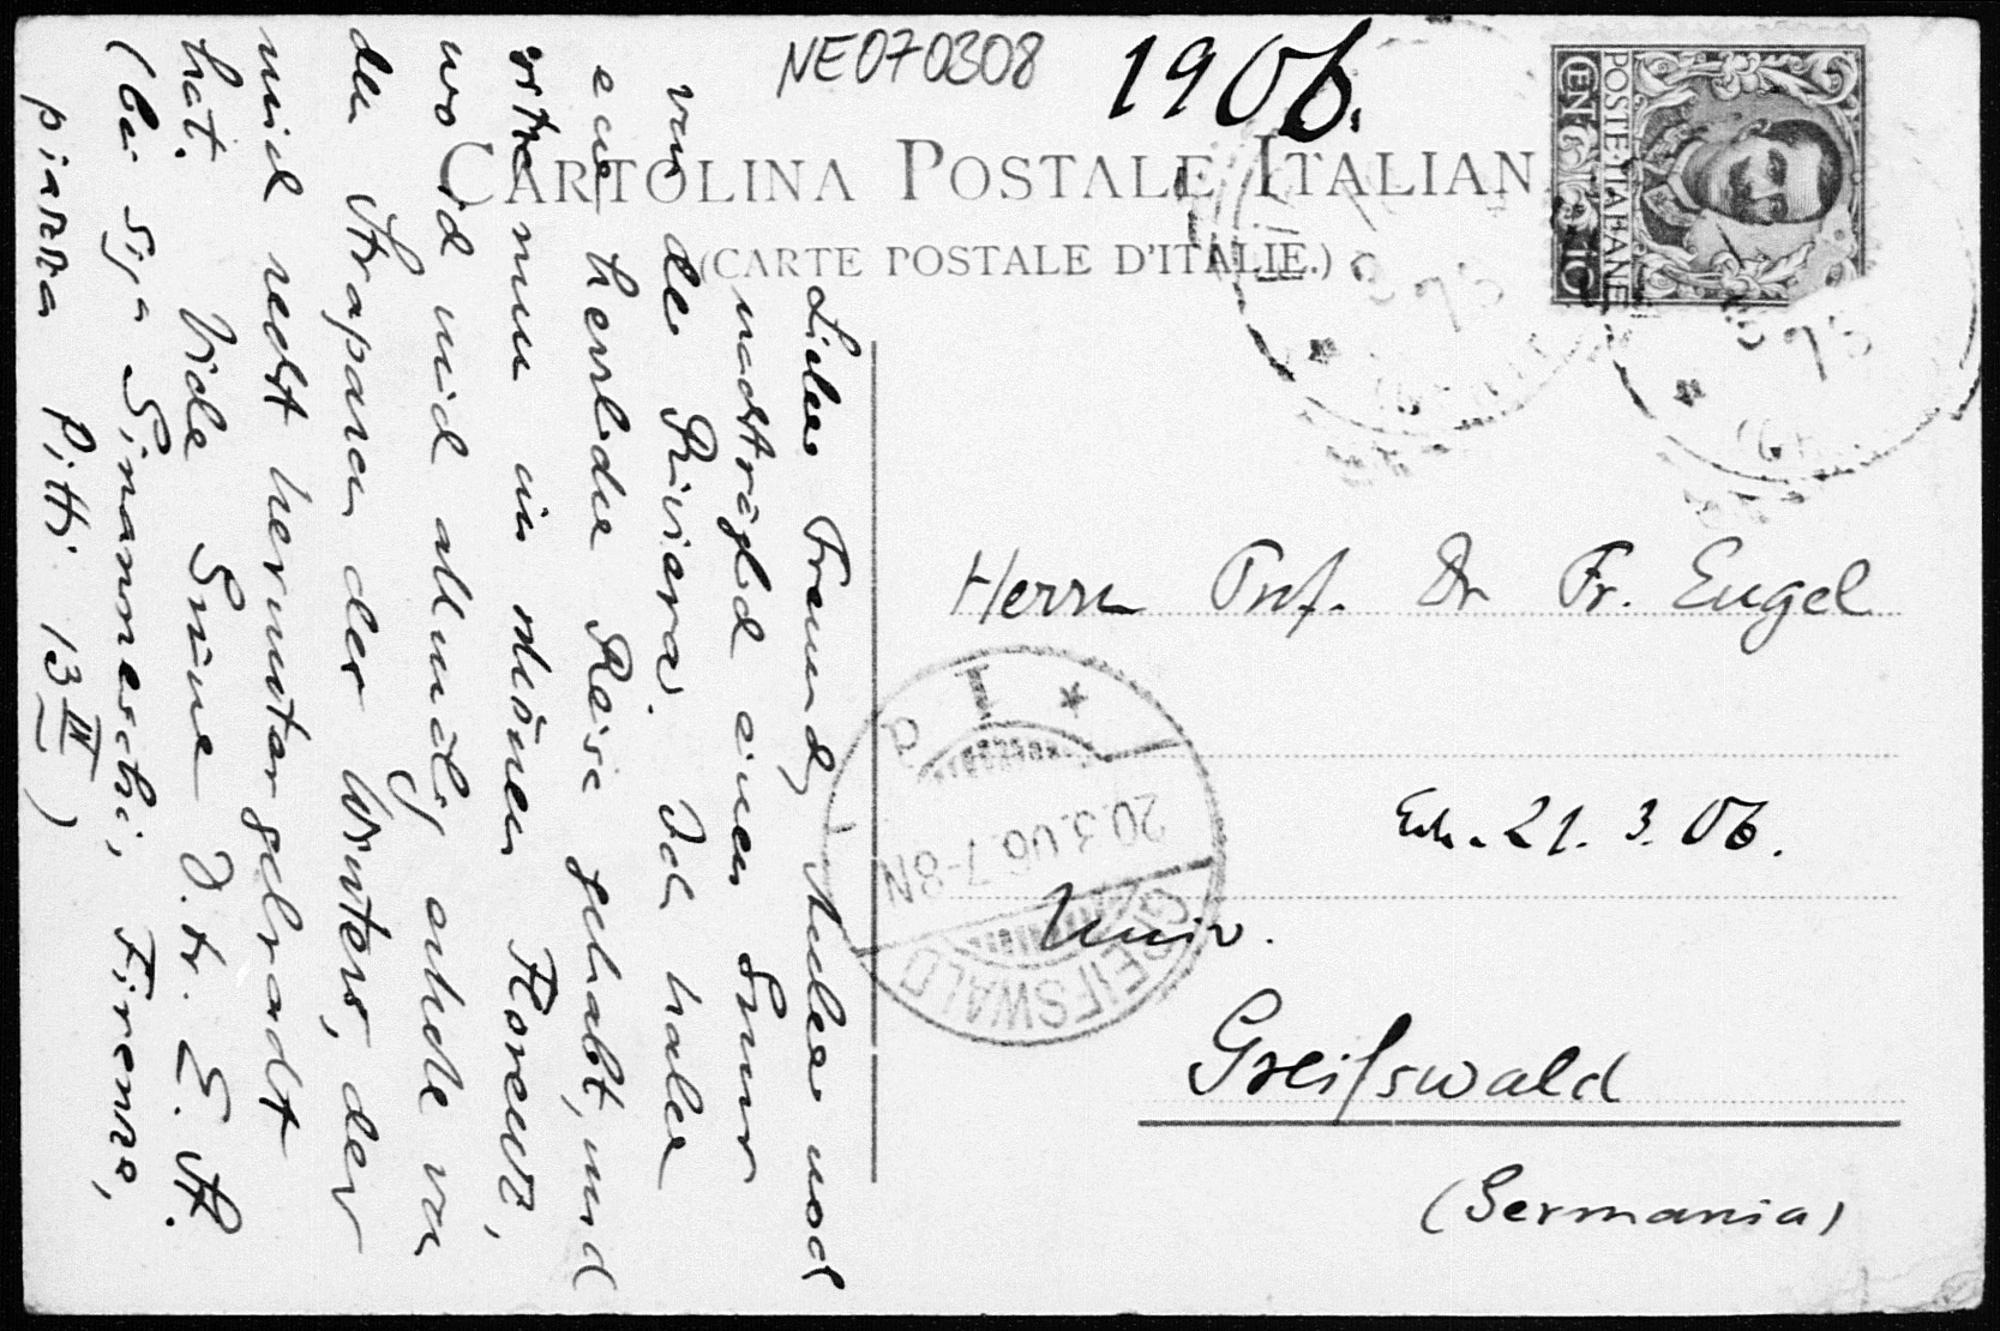 NE070308
1906.
CARTOLINA POSTALE ITALIAN
(CARTE POSTALE D'ITALIE.)
POSTE ITALIANE
CENT. 10
Herrn Prof. Dr Fr. Engel
21. 3. 06.
Univ.
Greifswald
(Germania)
GREIFSWALD
20.3.06.7-8N
Lieber Freund, Ihnen noch
nachträglich einen Gruss
von der Riviera. Ich habe
eine herrliche Reise gehabt, und
sitze nun im schönen Florenz,
wo ich mich allmälig erhole von
den Strapazen des Winters, der
mich recht heruntergebracht
hat. Viele Grüsse I. tr. E. St.
(bei Sigra Simanneschi, Firenze,
piazza Pitti 13 III)